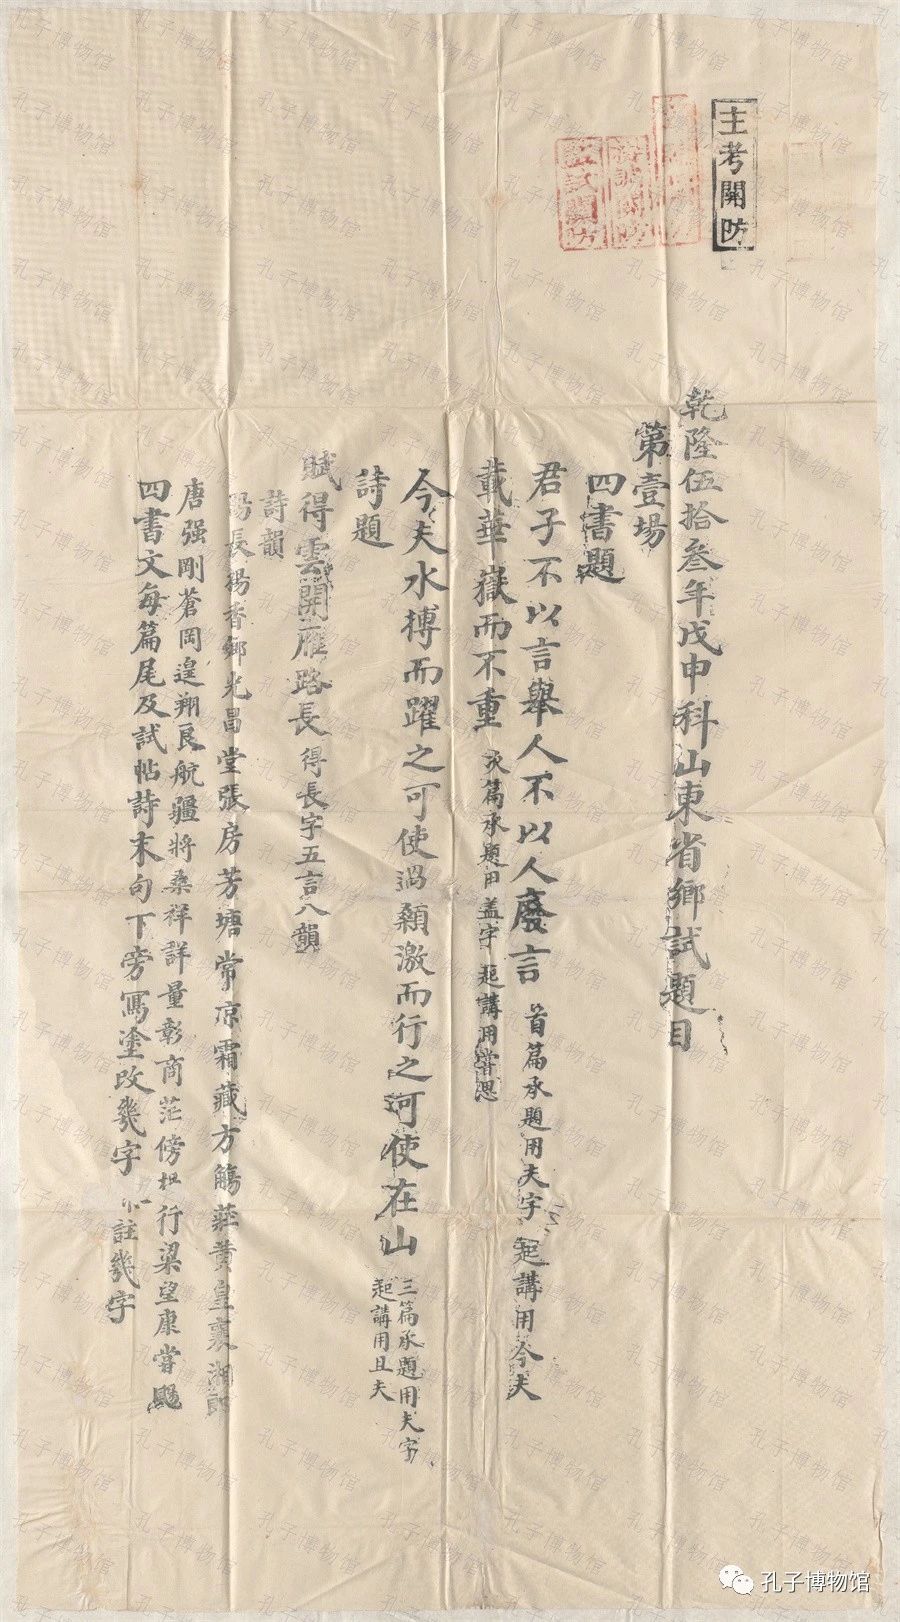 主考關防
乾隆伍拾叁年戊申科山東省鄉試題目
第壹場
四書題
君子不以言舉人不以人廢言 首篇承題用夫字 起講用今夫
載華嶽而不重 次篇承題用盖字 起講用嘗思
今夫水搏而躍之可使過顙激而行之可使在山 三篇承題用夫字
起講用且夫
詩題
賦得雲開雁路長 得長字五言八韻
詩韻
陽長楊香鄉光昌堂張房芳塘常凉霜藏方觴莊黄皇襄湘郎
唐强剛蒼岡遑翔良航疆將桑祥詳量彰商茫傍 行梁望康嘗颺
四書文每篇尾及試帖詩末句下旁寫塗改幾字 註幾字
孔子博物馆